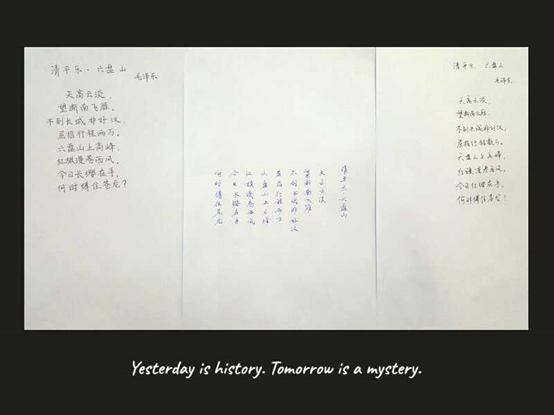 清平乐·六盘山
毛泽东
天高云淡,
望断南飞雁。
不到长城非好汉,
屈指行程两万。
六盘山上高峰,
红旗漫卷西风。
今日长缨在手,
何时缚住苍龙?
清平乐·六盘山
天高云淡
望断南飞雁
不到长城非好汉
屈指行程两万
六盘山上高峰
红旗漫卷西风
今日长缨在手
何时缚住苍龙
清平乐·六盘山
毛泽东
天高云淡,
望断南飞雁。
不到长城非好汉,
屈指行程
六盘山上高峰,
红旗漫卷西风。
今日长缨在手,
何时缚住苍龙?
Yesterday is history. Tomorrow is a mystery.